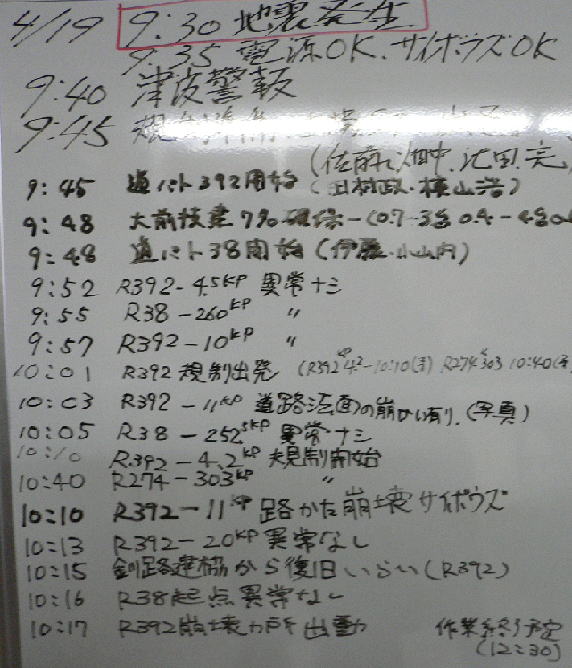 4/19 9:30 地震発生
9:35 電源OK、サイボウズOK
9:40 津波警報
9:45 規制
(佐藤 、畑中、池田、亮
9:45 道パト392開始 (田村政・横山浩)
9:48 大前技建
9:48 道パト38開始 (伊藤・小山内)
9:52 R392-4.5KP 異常ナシ
9:55 R38-260KP 〃
9:57 R392-10KP 〃
10:01 R392 規制出発 (R392 4.2-10:10 R274 303 10:40
10:03 R392-11KP 道路法面の崩かい有り。(写真)
10:05 R38-252.5KP 異常ナシ
10:10 R392-4.2KP 規制開始
10:40 R274-303KP 〃
10:10 R392-11KP 路かた崩壊 サイボウズ
10:13 R392-20KP 異常なし
10:15 釧路建協から復旧いらい(R392)
10:16 R38起点異常なし
10:17 R392崩壊カ所 出動 作業終了予定
(12:30)